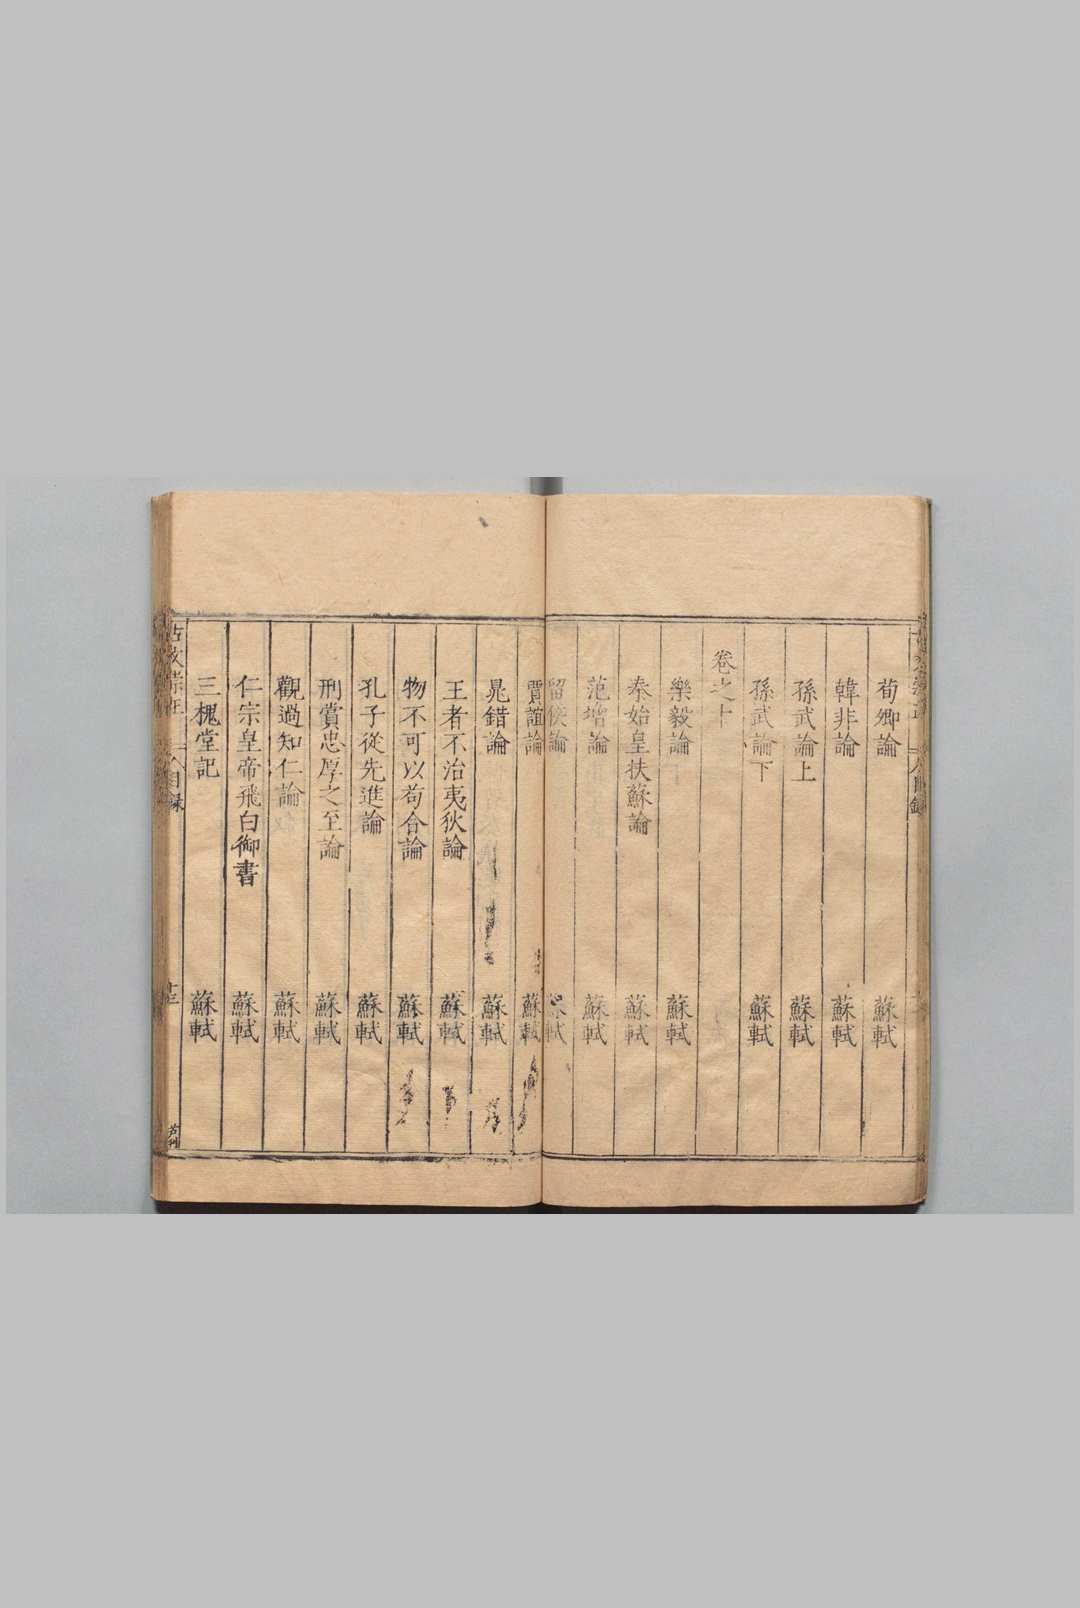 荀卿論 蘇軾
韓非論 蘇軾
孫武論上 蘇軾
孫武論下 蘇軾
卷之十
樂毅論 蘇軾
秦始皇扶蘇論 蘇軾
范增論 蘇軾
留侯論 蘇軾
賈誼論 蘇軾
晁錯論 蘇軾
王者不治夷狄論 蘇軾
物不可以苟合論 蘇軾
孔子從先進論 蘇軾
刑賞忠厚之至論 蘇軾
觀過知仁論 蘇軾
仁宗皇帝飛白御書 蘇軾
三槐堂記 蘇軾
目録 十三